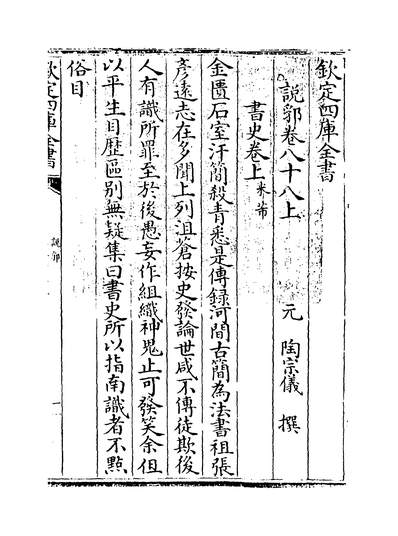 欽定四庫全書
說郛卷八十八上
元 陶宗儀 撰
書史卷上 米芾
金匱石室汗簡殺青悉是傳録河間古簡為法書祖張
彥遠志在多聞上列沮蒼按史發論世咸不傳徒欺後
人有識所罪至於後愚妄作組織神鬼止可發笑余但
以平生目歴區别無疑集曰書史所以指南識者不點
俗目
欽定四庫全書
說郛
一